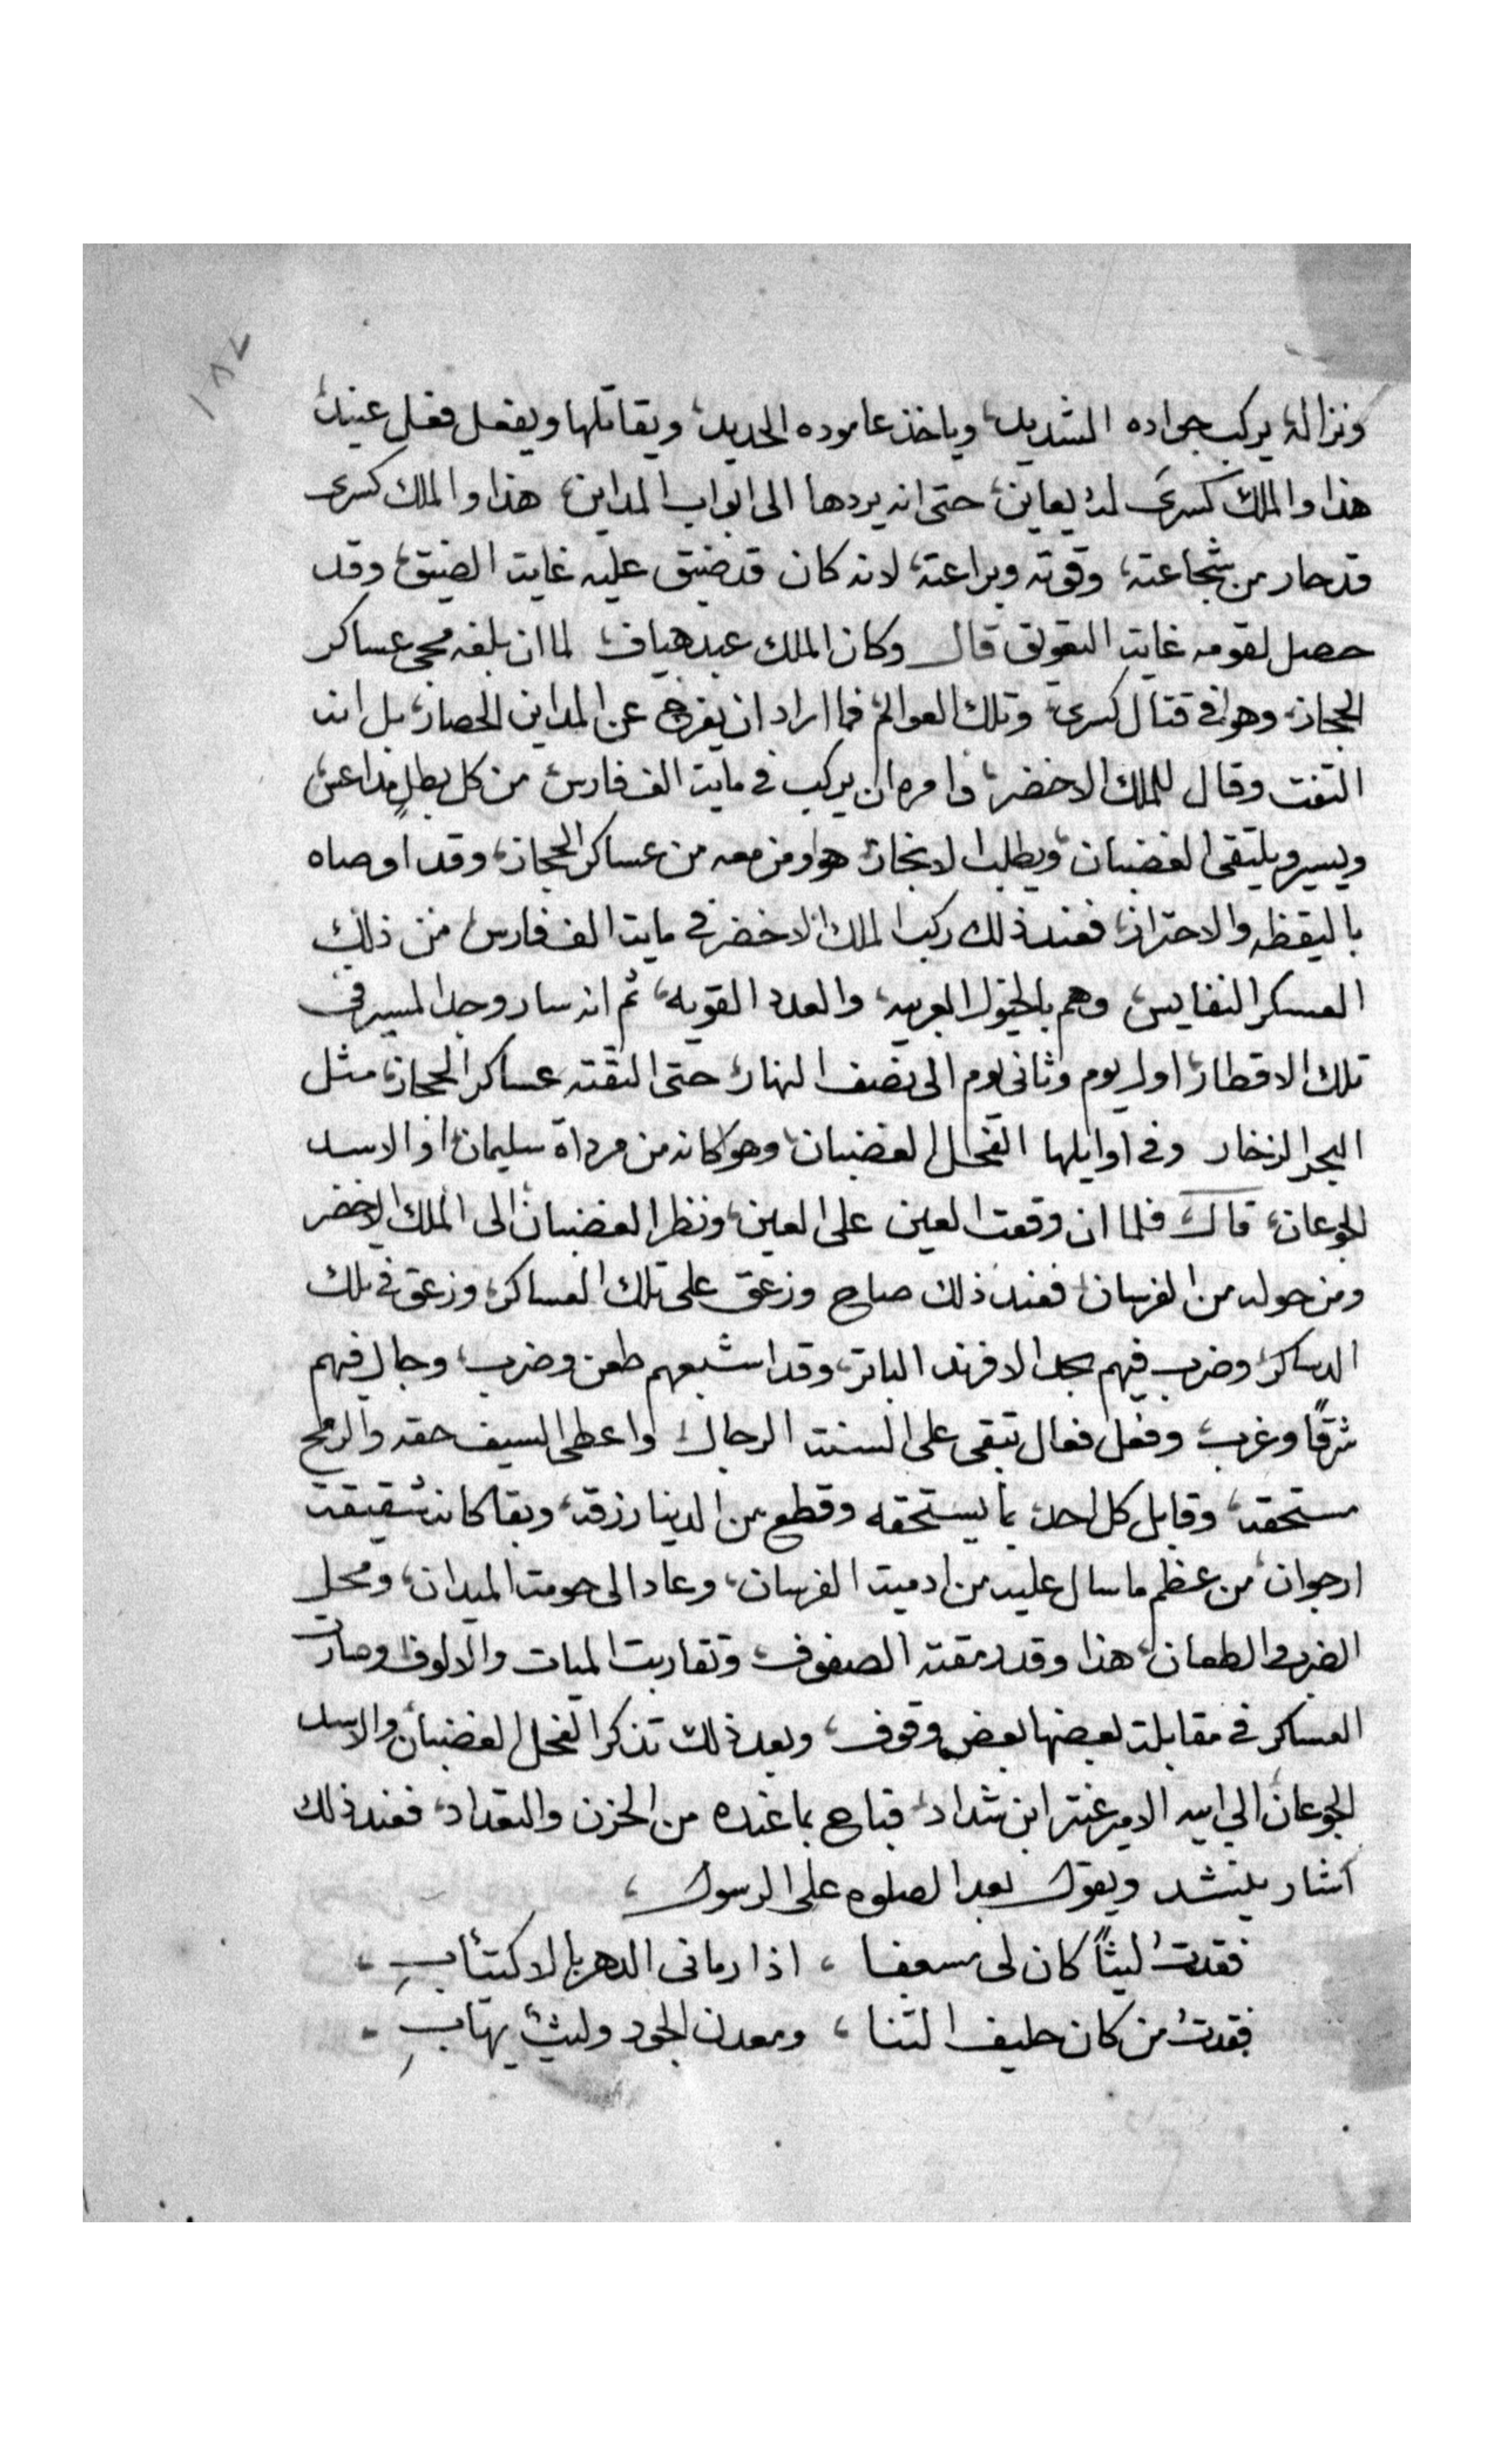 ١٨٧
ونزاله، يركب جواده الشديد، وياخذ عاموده الحديد، ويقاتلها ويفعل فعل عنيد،
هذا والملك كسرى له يعاين، حتى انه يردها الى ابواب المداين، هذا والملك كسرى
قد حار من شجاعته، وقوته وبراعته، لانه كان قد ضيق عليه غايت الضيق، وقد
حصل لقومه غايت التعويق قال وكان الملك عبد هياف لما ان بلغه مجي عساكر
الحجاز، وهو في قتال كسرى، وتلك العوالم، فما اراد ان يفرج عن المداين الحصار، بل انه
التفت وقال للملك الاخضر، وامره ان يركب في مايت الف فارس، من كل بطلٍ مداعس
ويسير ويلتقى الغضبان، ويطلب الانجاز، هو ومن معه من عساكر الحجاز، وقد اوصاه
باليقظه والاحتراز، فعند ذلك ركب الملك الاخضر في مايت الف فارس، من ذلك
العسكر النفايس، وهم بالخيول العربيه، والعدد القويه، ثم انه سار وجد المسير في
تلك الاقطار، اول يوم وثاني يوم الى نصف النهار، حتى التقته عساكر الحجاز، مثل
البحر الزخار وفي اوايلها الفحل الغضبان، وهو كانه من مرداة سليمان، او الاسد
الجوعان، قال فلما ان وقعت العين على العين، ونظر الغضبان الى الملك الاخضر
ومن حوله من الفرسان، فعند ذلك صاح وزعق على تلك العساكر، وزعق في تلك
الدساكر، وضرب فيهم بحد الافرند الباتر، وقد اشبعهم طعن وضرب، وجال فيهم
شرقًا وغرب، وفعل فعال تبقى على السنت الرجال واعطى السيف حقه والرمح
مستحقه، وقابل كل احد، بما يستحقه وقطع من الدينا رزقه، وبقا كانه شقيقت
ارجوان، من عظم ما سال عليه من ادميت الفرسان، وعاد الى حومت الميدان، ومحل
الضرب والطعان، هذا وقد رمقته الصفوف، وتقاربت الميات والالوف، وصارت
العساكر في مقابلت بعضها بعض وقوف، وبعد ذلك تذكر الفحل الغضبان والاسد
الجوعان الى ابيه الامير عنتر ابن شداد، فباح بما عنده من الحزن والتعداد، فعند ذلك
اشار ينشد ويقول بعد الصلوه على الرسول،
فقدتُ ليثًا كان لى مسعفا، اذا رمانى الدهر بالاكتئابِ،
فقدتُ من كان حليف الثنا، ومعدن الجود وليثٌ يهابِ،